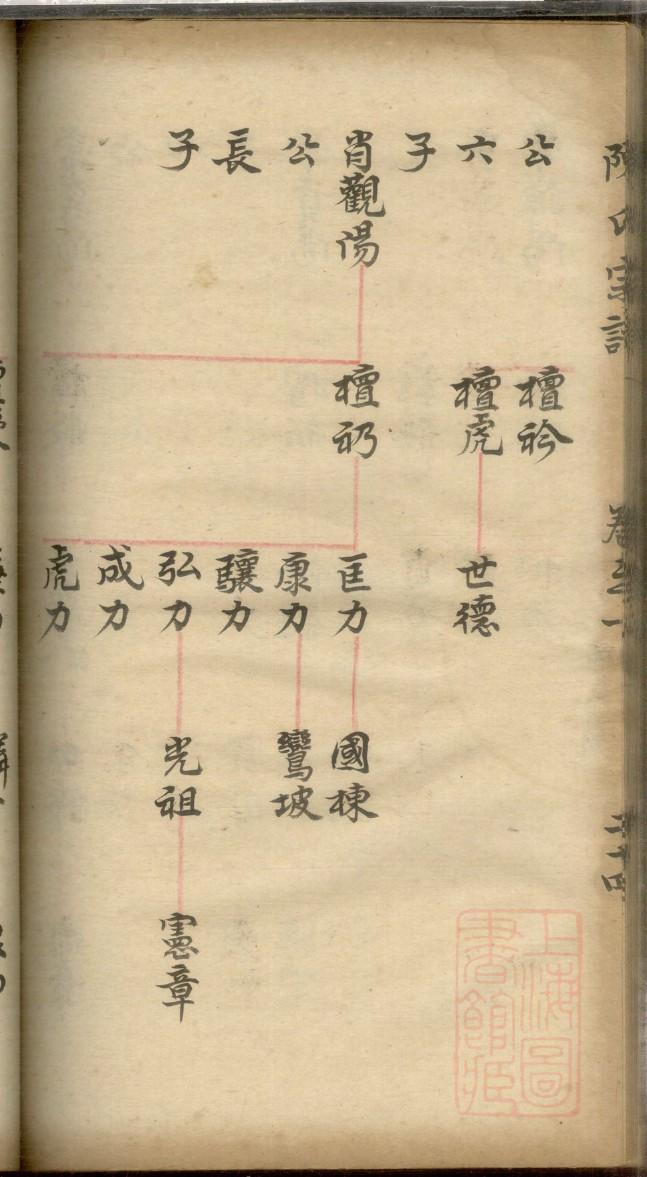 陳氏宗譜
卷之一
二十四
公
六
子
肖觀陽
公
長
子
檀衿
檀虎
檀礽
世德
匡力
康力
驤力
弘力
成力
虎力
國棟
鸞坡
光祖
憲章
上海圖
書館藏